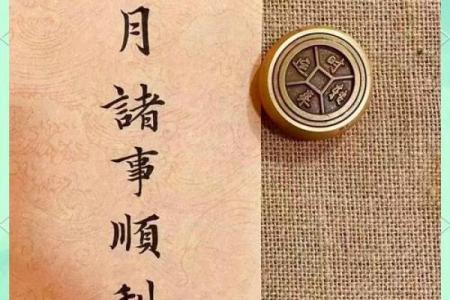 月諸事順利